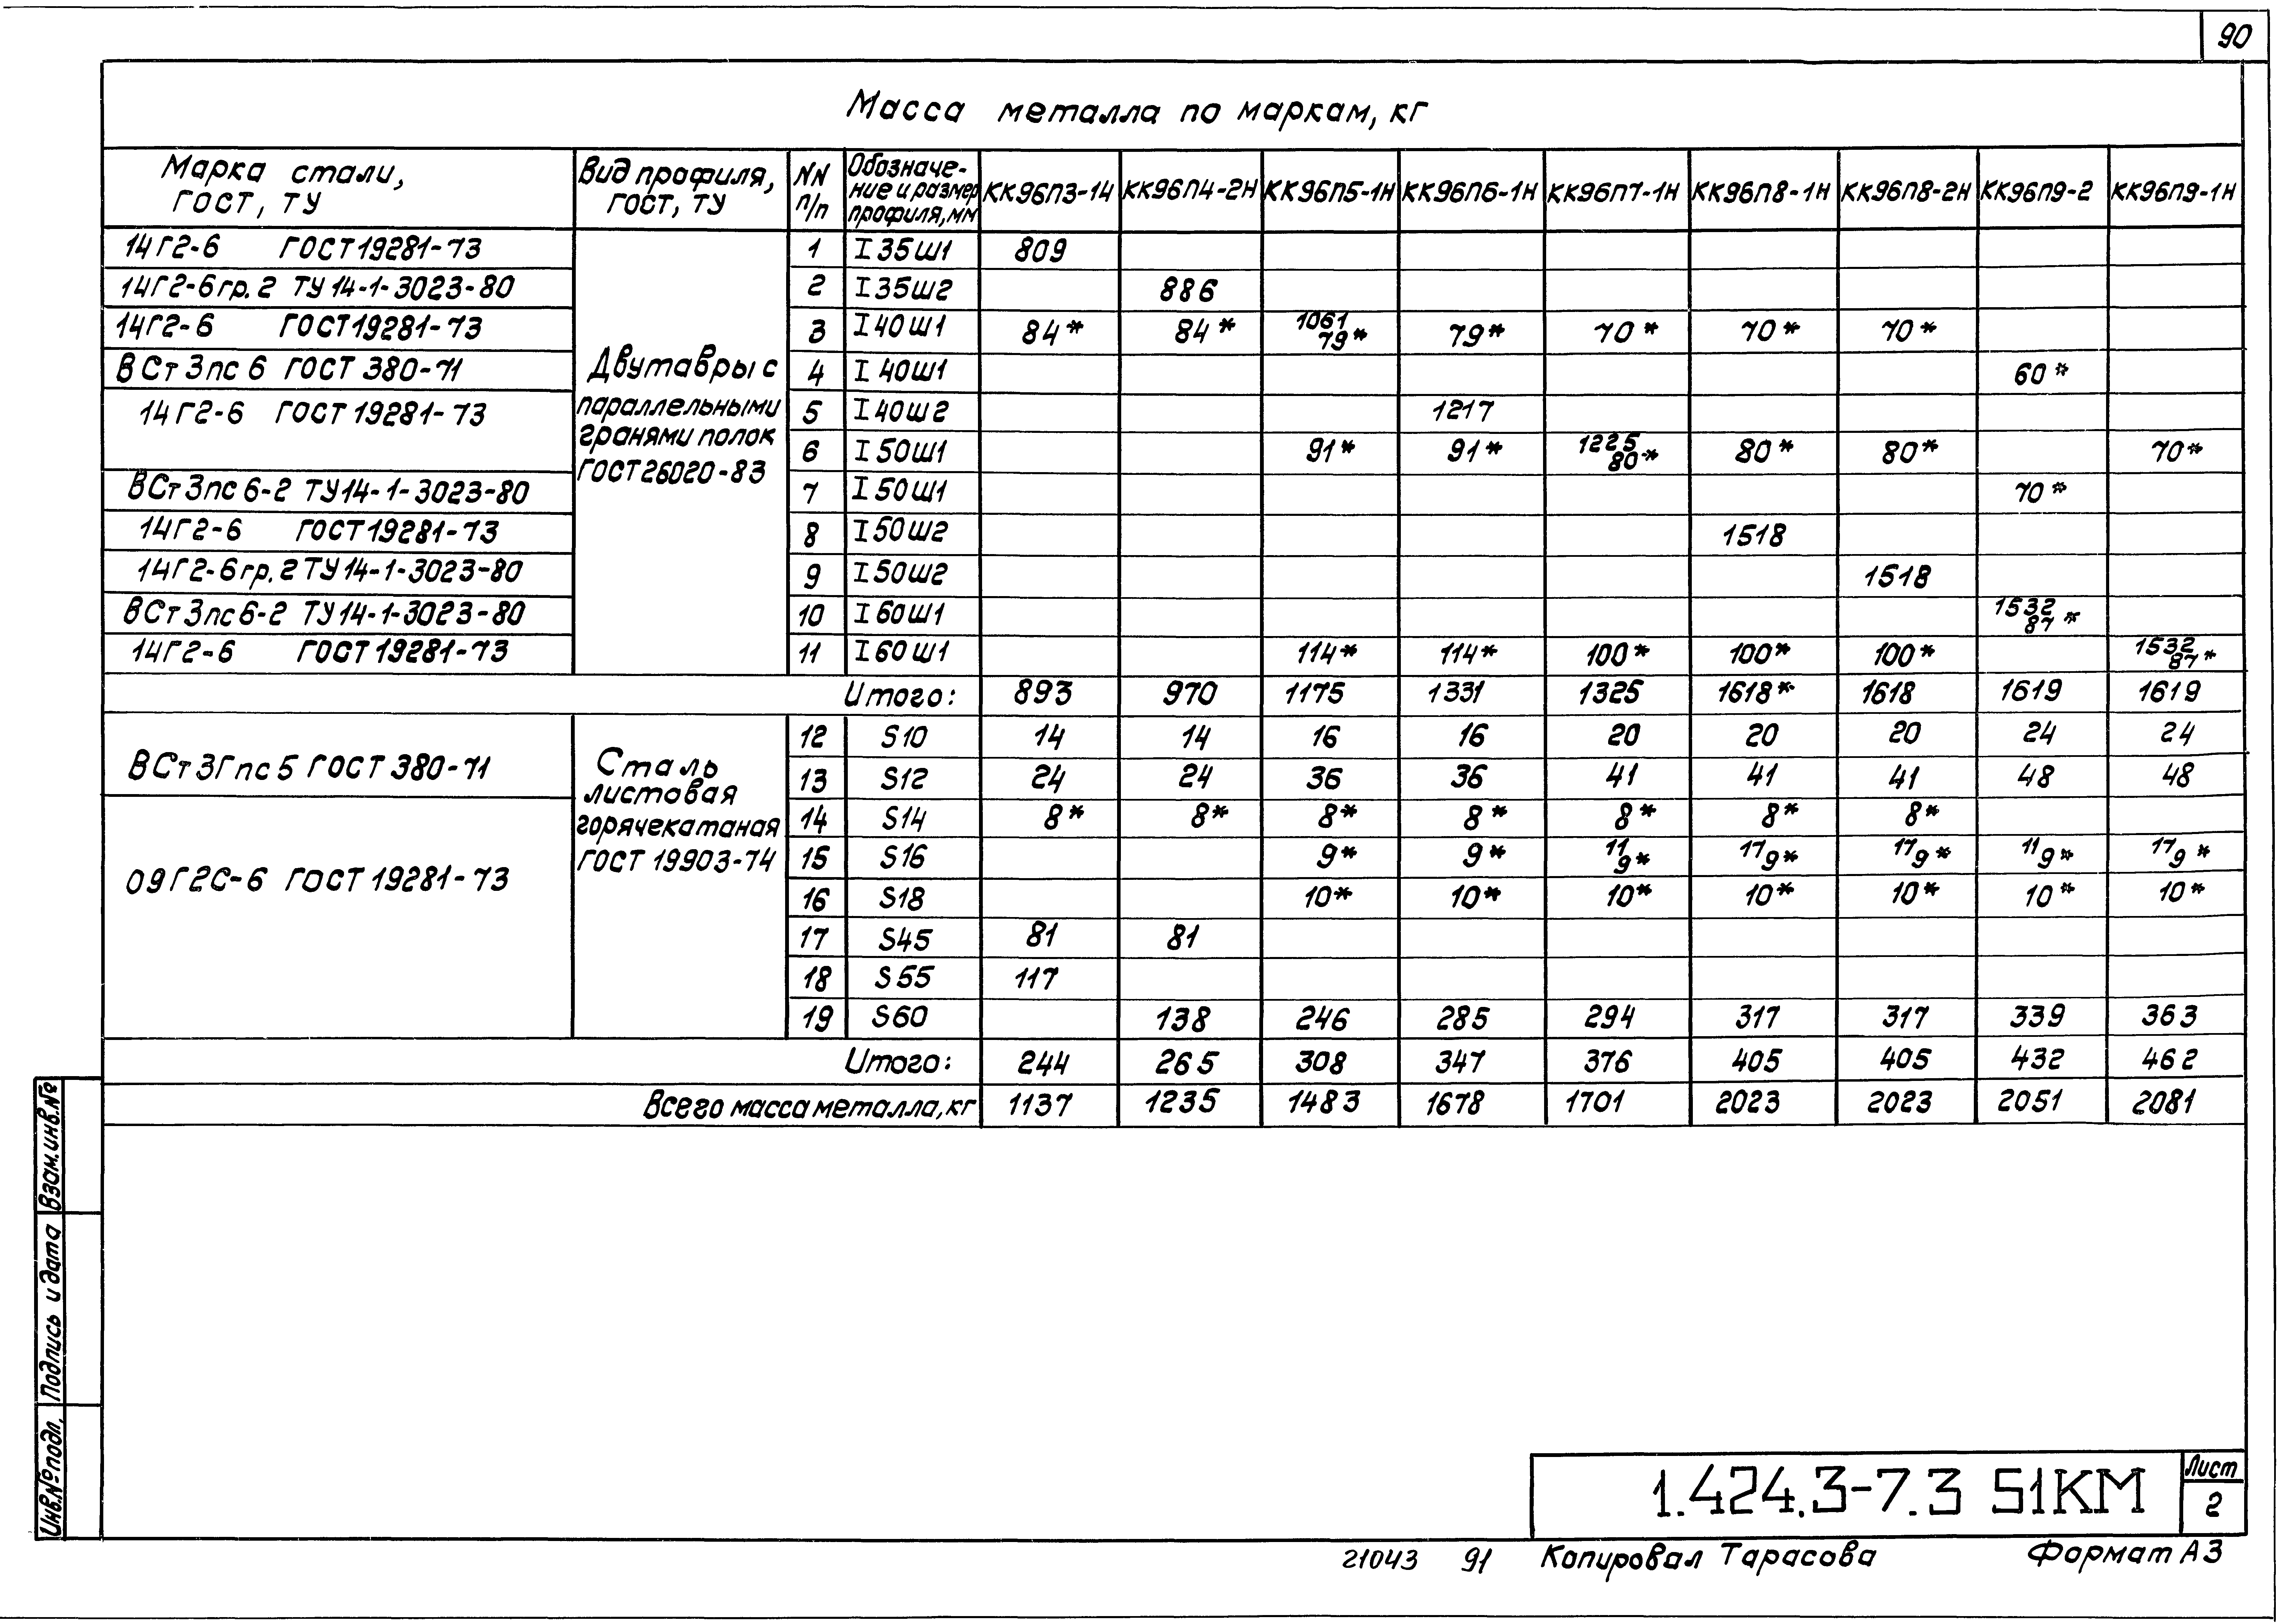 90
Масса металла по маркам, кг
Марка стали, ГОСТ, ТУ | Вид профиля, ГОСТ, ТУ | NN п/п | Обозначе-ние и размер профиля, мм | КК96П3-14 | КК96П4-2Н | КК96П5-1Н | КК96П6-1Н | КК96П7-1Н | КК96П8-1Н | КК96П8-2Н | КК96П9-2 | КК96П9-1Н
14Г2-6 ГОСТ 19281-73 | 1 | I 35Ш1 | 809
14Г2-6гр.2 ТУ 14-1-3023-80 | 2 | I 35Ш2 | 886
14Г2-6 ГОСТ 19281-73 | 3 | I 40Ш1 | 84* | 84* | 1061 79* | 79* | 70* | 70* | 70*
ВСт3пс6 ГОСТ 380-71 | 4 | I 40Ш1 | 60*
14Г2-6 ГОСТ 19281-73 | 5 | I 40Ш2 | 1217
6 | I 50Ш1 | 91* | 91* | 1225 80* | 80* | 80* | 70*
Двутавры с
параллельными
гранями полок
ГОСТ 26020-83
ВСт3пс6-2 ТУ14-1-3023-80 | 7 | I 50Ш1 | 70*
14Г2-6 ГОСТ 19281-73 | 8 | I 50Ш2 | 1518
14Г2-6гр.2 ТУ 14-1-3023-80 | 9 | I 50Ш2 | 1518
ВСт3пс6-2 ТУ14-1-3023-80 | 10 | I 60Ш1 | 1532 87*
14Г2-6 ГОСТ 19281-73 | 11 | I 60Ш1 | 114* | 114* | 100* | 100* | 100* | 1532 87*
Итого: | 893 | 970 | 1175 | 1331 | 1325 | 1618* | 1618 | 1619 | 1619
12 | S10 | 14 | 14 | 16 | 16 | 20 | 20 | 20 | 24 | 24
ВСт3Гпс5 ГОСТ 380-71 | 13 | S12 | 24 | 24 | 36 | 36 | 41 | 41 | 41 | 48 | 48
Сталь
листовая
горячекатаная
ГОСТ 19903-74
14 | S14 | 8* | 8* | 8* | 8* | 8* | 8* | 8*
15 | S16 | 9* | 9* | 11 9* | 17 9* | 17 9* | 11 9* | 17 9*
09Г2С-6 ГОСТ 19281-73 | 16 | S18 | 10* | 10* | 10* | 10* | 10* | 10* | 10*
17 | S45 | 81 | 81
18 | S55 | 117
19 | S60 | 138 | 246 | 285 | 294 | 317 | 317 | 339 | 363
Итого: | 244 | 265 | 308 | 347 | 376 | 405 | 405 | 432 | 462
Всего масса металла, кг | 1137 | 1235 | 1483 | 1678 | 1701 | 2023 | 2023 | 2051 | 2081
Взам.инв.№
Подпись и дата
Инв.№подл.
1.424.3-7.3 51КМ
Лист
2
21043 91 Копировал Тарасова Формат А3